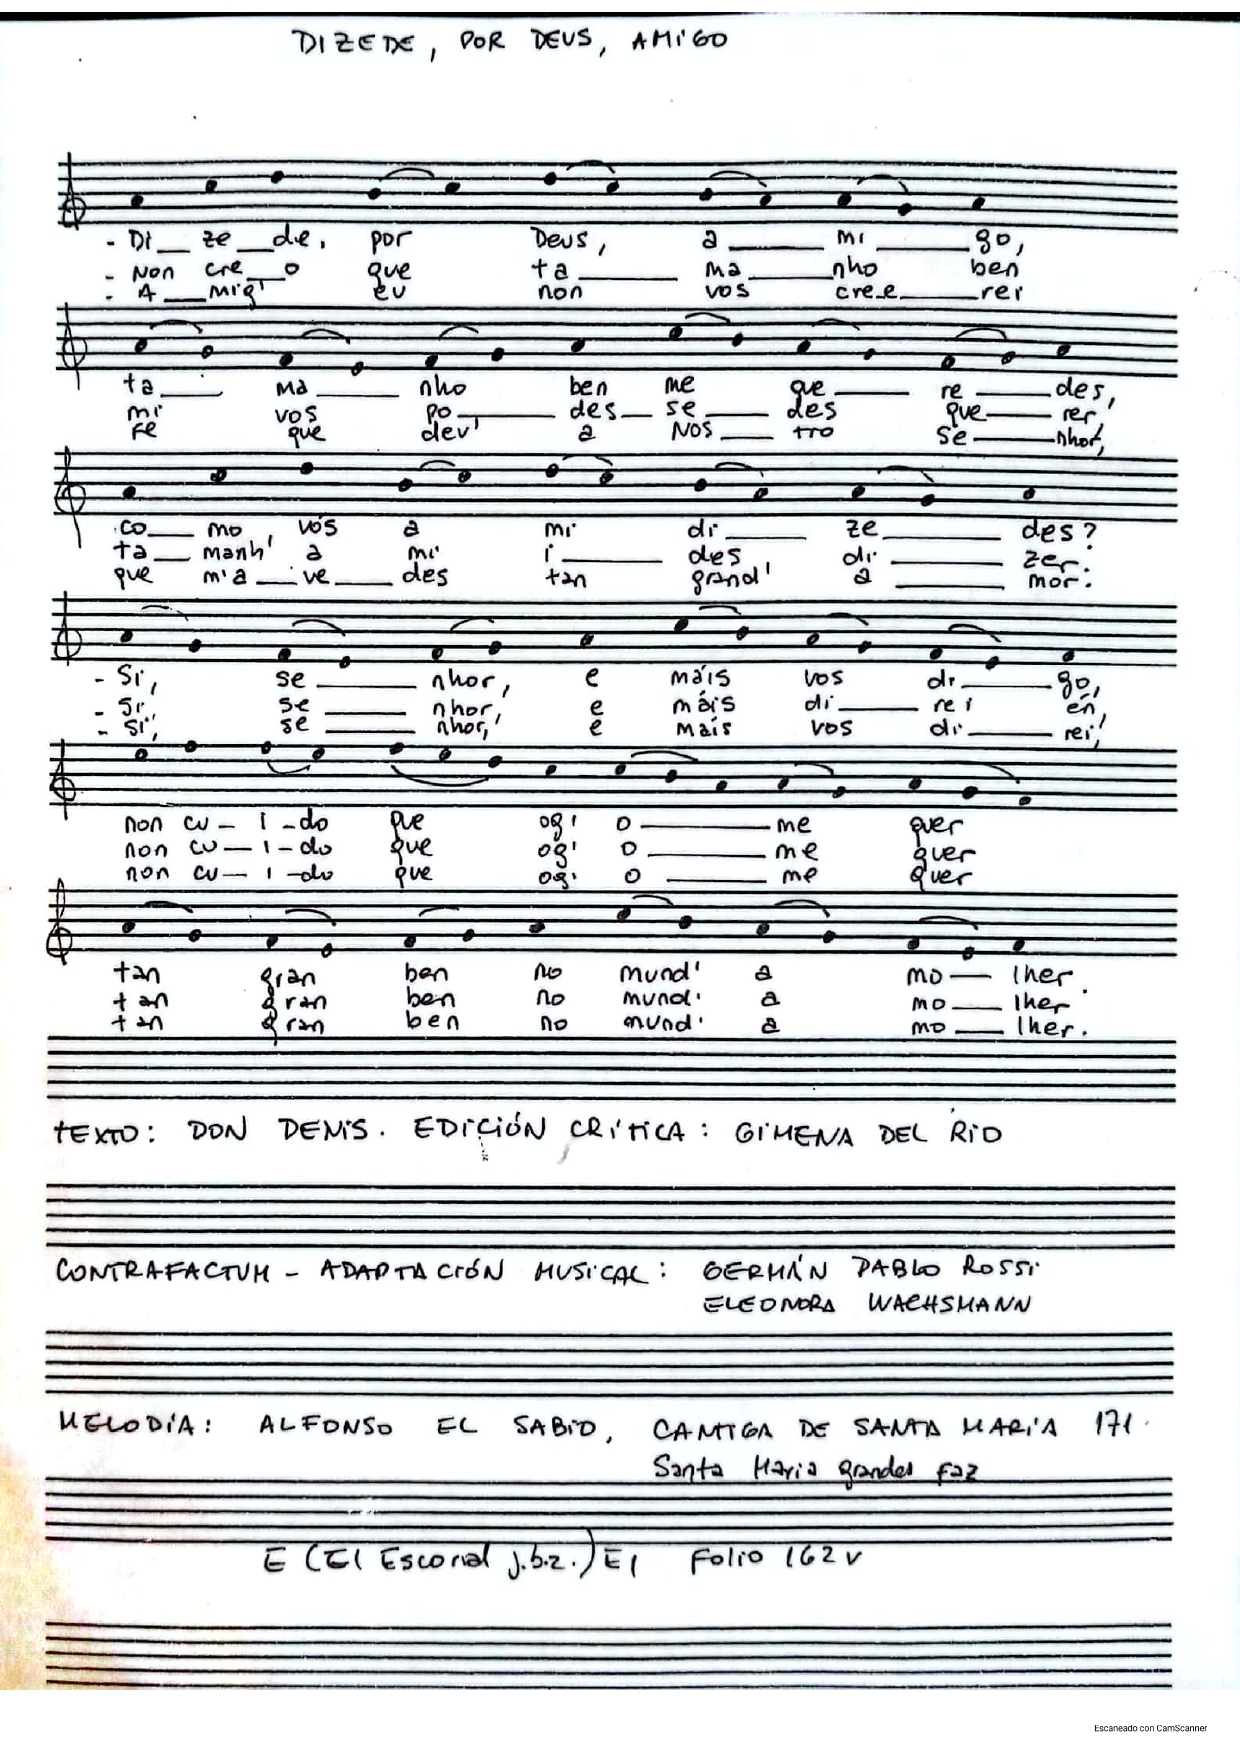 DIZEDE, POR DEUS, AMIGO
- Di__ze__de, por Deus, a____mi____go,
- Non cre__o que ta____ma____nho ben
- A__mig' eu non vos cree____rei
ta____ma____nho ben me que____re____des,
mi vos po____des__se____des que__rer,
fe que dev' a Nos__tro Se____nhor,
co__mo vós a mi di____ze____des?
ta__manh' a mi i____des di____zer.
que m'a__ve__des tan grand' a____mor.
- Si, se____nhor, e máis vos di____go,
- Si, se____nhor, e máis di____rei én,
- Si, se____nhor, e mais vos di____rei,
non cu_i_do que ogi o____me quer
non cu_i_do que ogi o____me quer
non cu_i_do que ogi o____me quer
tan gran ben no mund' a mo__lher.
tan gran ben no mund' a mo__lher
tan gran ben no mund' a mo__lher.
TEXTO: DON DENIS. EDICIÓN CRÍTICA: GIMENA DEL RIO
CONTRAFACTUM - ADAPTACIÓN MUSICAL: GERMÁN PABLO ROSSI
ELEONORA WACHSMANN
MELODÍA: ALFONSO EL SABIO, CANTIGA DE SANTA MARÍA 171.
Santa Maria grandes faz
E (El Escorial j.b.2.) E1 Folio 162v
Escaneado con CamScanner